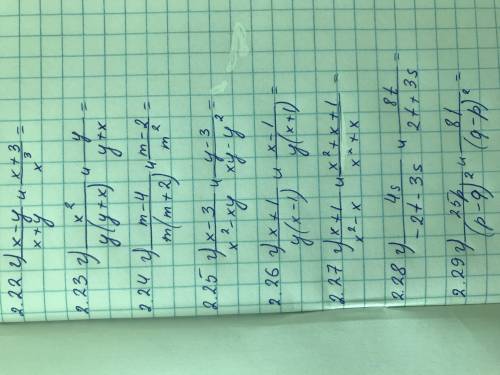 2.22 г) x-y/x+y и x+3/x³ =
2.23 г) x²/y(y+x) и y/y+x =
2.24 г) m-4/m(m+2) и m-2/m² =
2.25 г) x-3/x²-xy и y-3/xy-y² =
2.26 г) x+1/y(x-1) и x-1/y(x+1) =
2.27 г) x+1/x²-x и x²+x+1/x²+x =
2.28 г) 4s/-2t+3s и 8t/2t+3s =
2.29 г) 25p/(p-q)² и 81/(q-p)² =